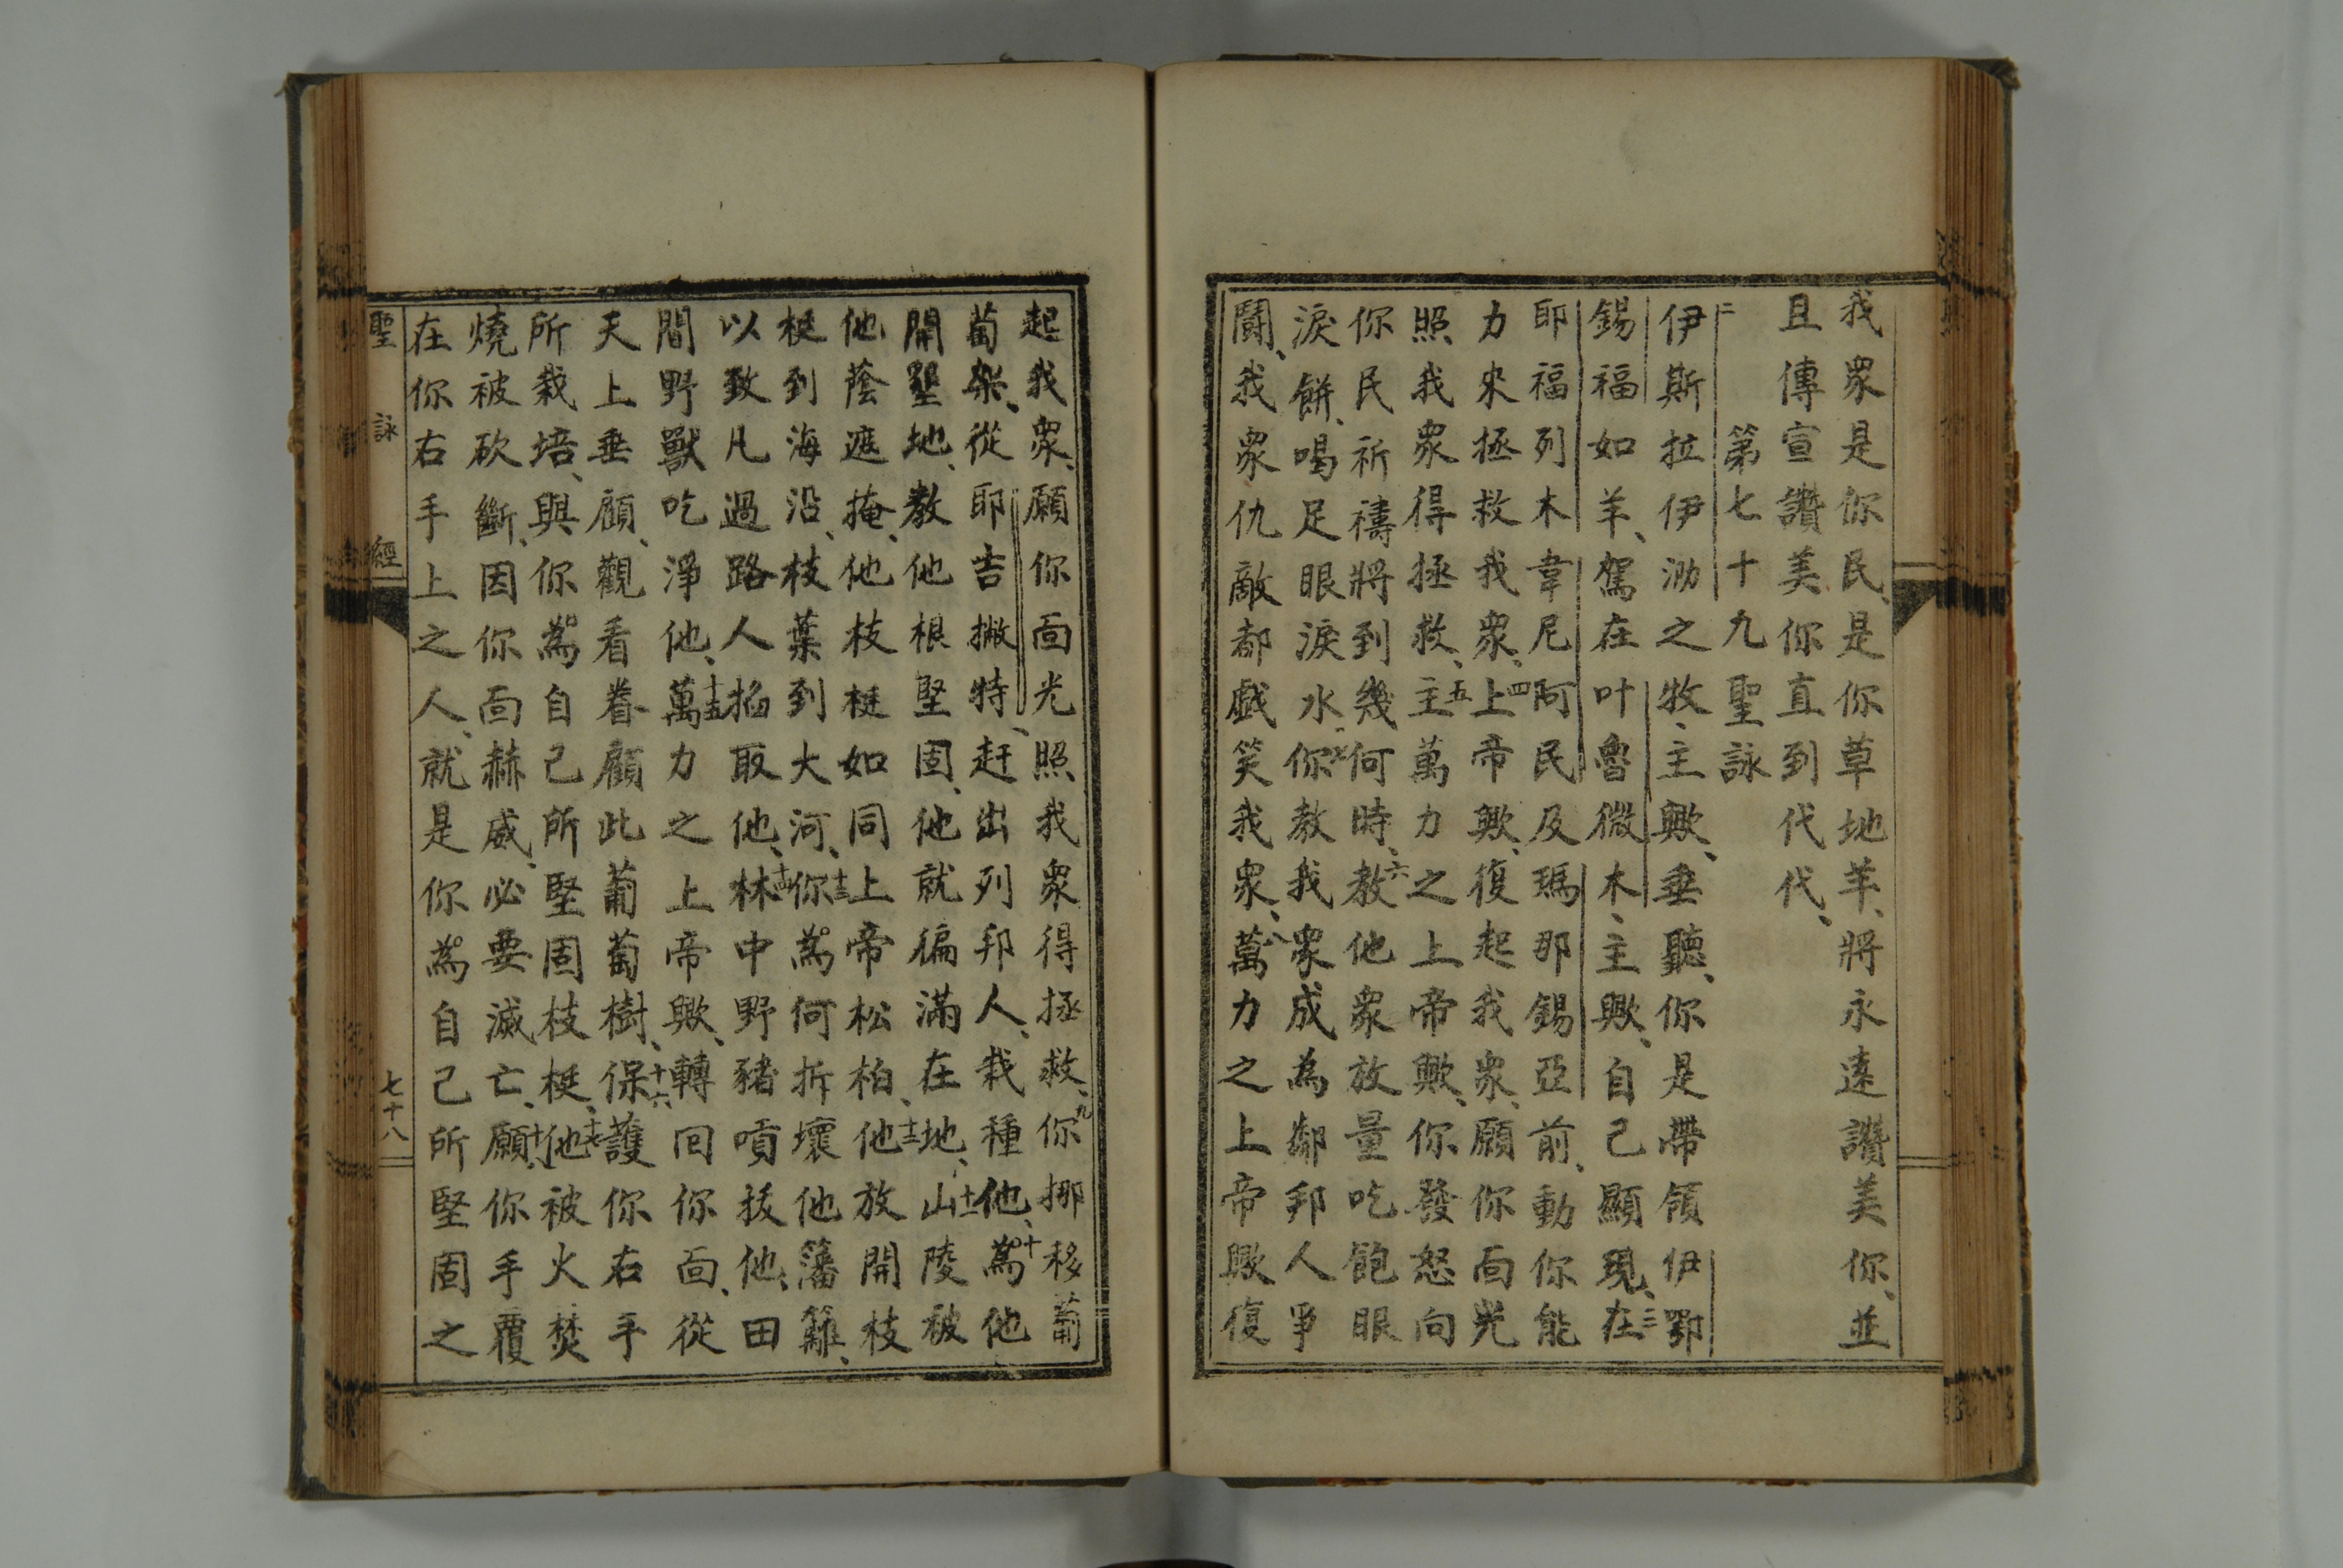 我衆是你民、是你草地羊、將永遠讚美你、並
且傳宣讚美你直到代代、
第七十九聖詠
二伊斯拉伊泐之牧、主歟、垂聽、你是帶領伊鄂
錫福如羊、駕在叶魯微木、主歟、自己顯現、三在
耶福列木韋尼阿民及瑪那錫亞前、動你能
力來拯救我衆、四上帝歟、復起我衆、願你面光
照我衆得拯救、五主萬力之上帝歟、你發怒向
你民祈禱將到幾何時、六教他衆放量吃飽眼
淚餅、喝足眼淚水、七你教我衆成為鄰邦人爭
鬪、我衆仇敵都戲笑我衆、八萬力之上帝歟復
起我衆、願你面光照我衆得拯救、九你挪移葡
萄架、從耶吉撇特、赶出列邦人、栽種他、十為他
開墾地、教他根堅固、他就徧滿在地、十一山陵被
他蔭遮掩、他枝梃如同上帝松柏、十二他放開枝
梃到海沿、枝葉到大河、十三你為何拆壞他藩籬、
以致凡過路人掐取他、十四林中野豬嘖拔他、田
間野獸吃淨他、十五萬力之上帝歟、轉回你面、從
天上垂顧、觀看眷顧此葡萄樹、十六保護你右手
所栽培、與你為自己所堅固枝梃、十七他被火焚
燒被砍斷、因你面赫威、必要滅亡、十八願你手覆
在你右手上之人、就是你為自己所堅固之
聖詠經
七十八